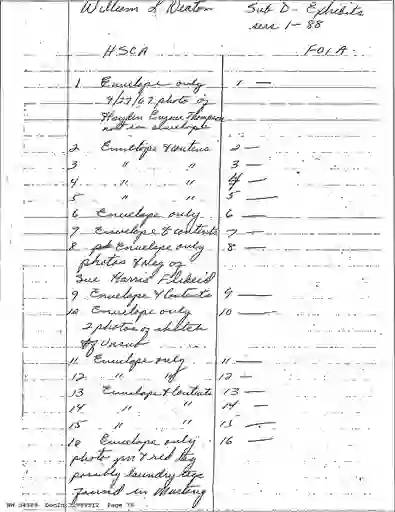 William L Deaton Sub D - Exhibits
1 - 88
HSCA FOIA
1 Envelope only 1 —
photo of
Hayden Eugene Thompson
not in envelope
2 Envelope & contents 2 —
3 " " 3 —
4 " " 4 —
5 " " 5 —
6 Envelope only 6 —
7 Envelope & contents 7 —
8 Envelope only 8 —
photos & neg of
Sue Harris
9 Envelope & Contents 9 —
10 Envelope only 10 —
2 photos of sketch
of Unsub
11 Envelope only 11 —
12 " " 12 —
13 Envelope & Contents 13 —
14 " " 14 —
15 " " 15 —
16 Envelope only 16 —
photo & red tag
possibly laundry tag
found in Mustang
Page 76